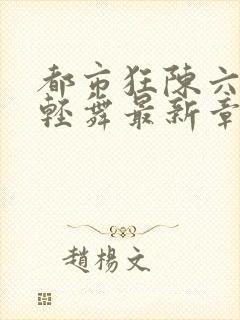 都市狂陳六
輕舞最新章
趙楊文